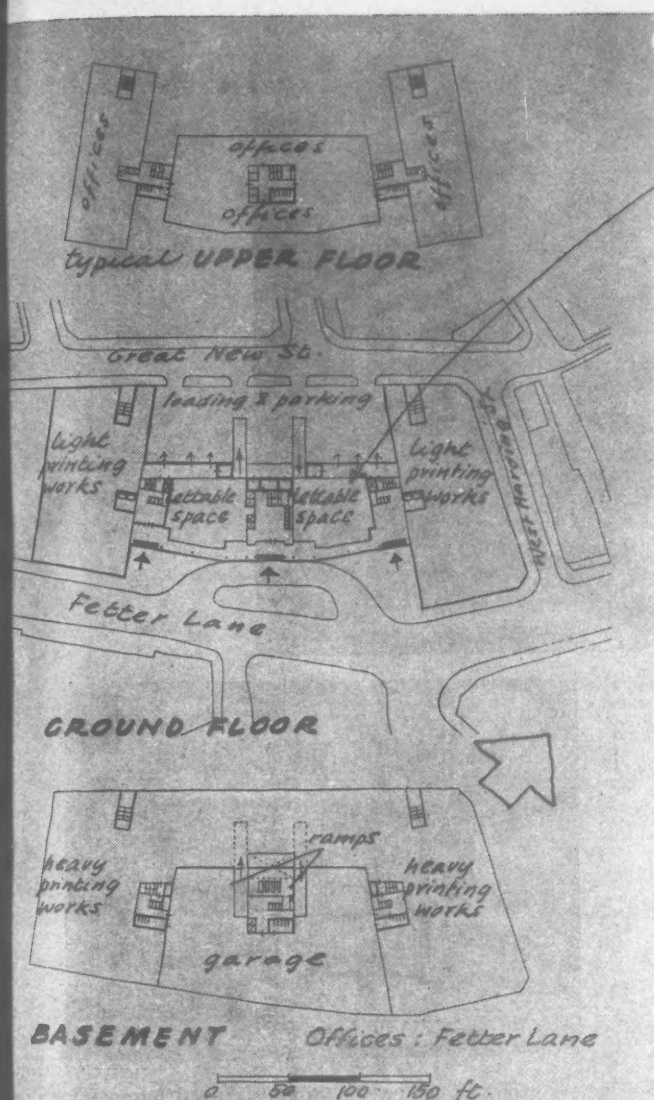 offices
offices
offices
offices
typical UPPER FLOOR
Great New St.
loading & parking
light
printing
works
lettable
space
lettable
space
light
printing
works
West Harding St.
Fetter Lane
GROUND FLOOR
ramps
heavy
printing
works
heavy
printing
works
garage
BASEMENT Offices : Fetter Lane
0 50 100 150 ft.